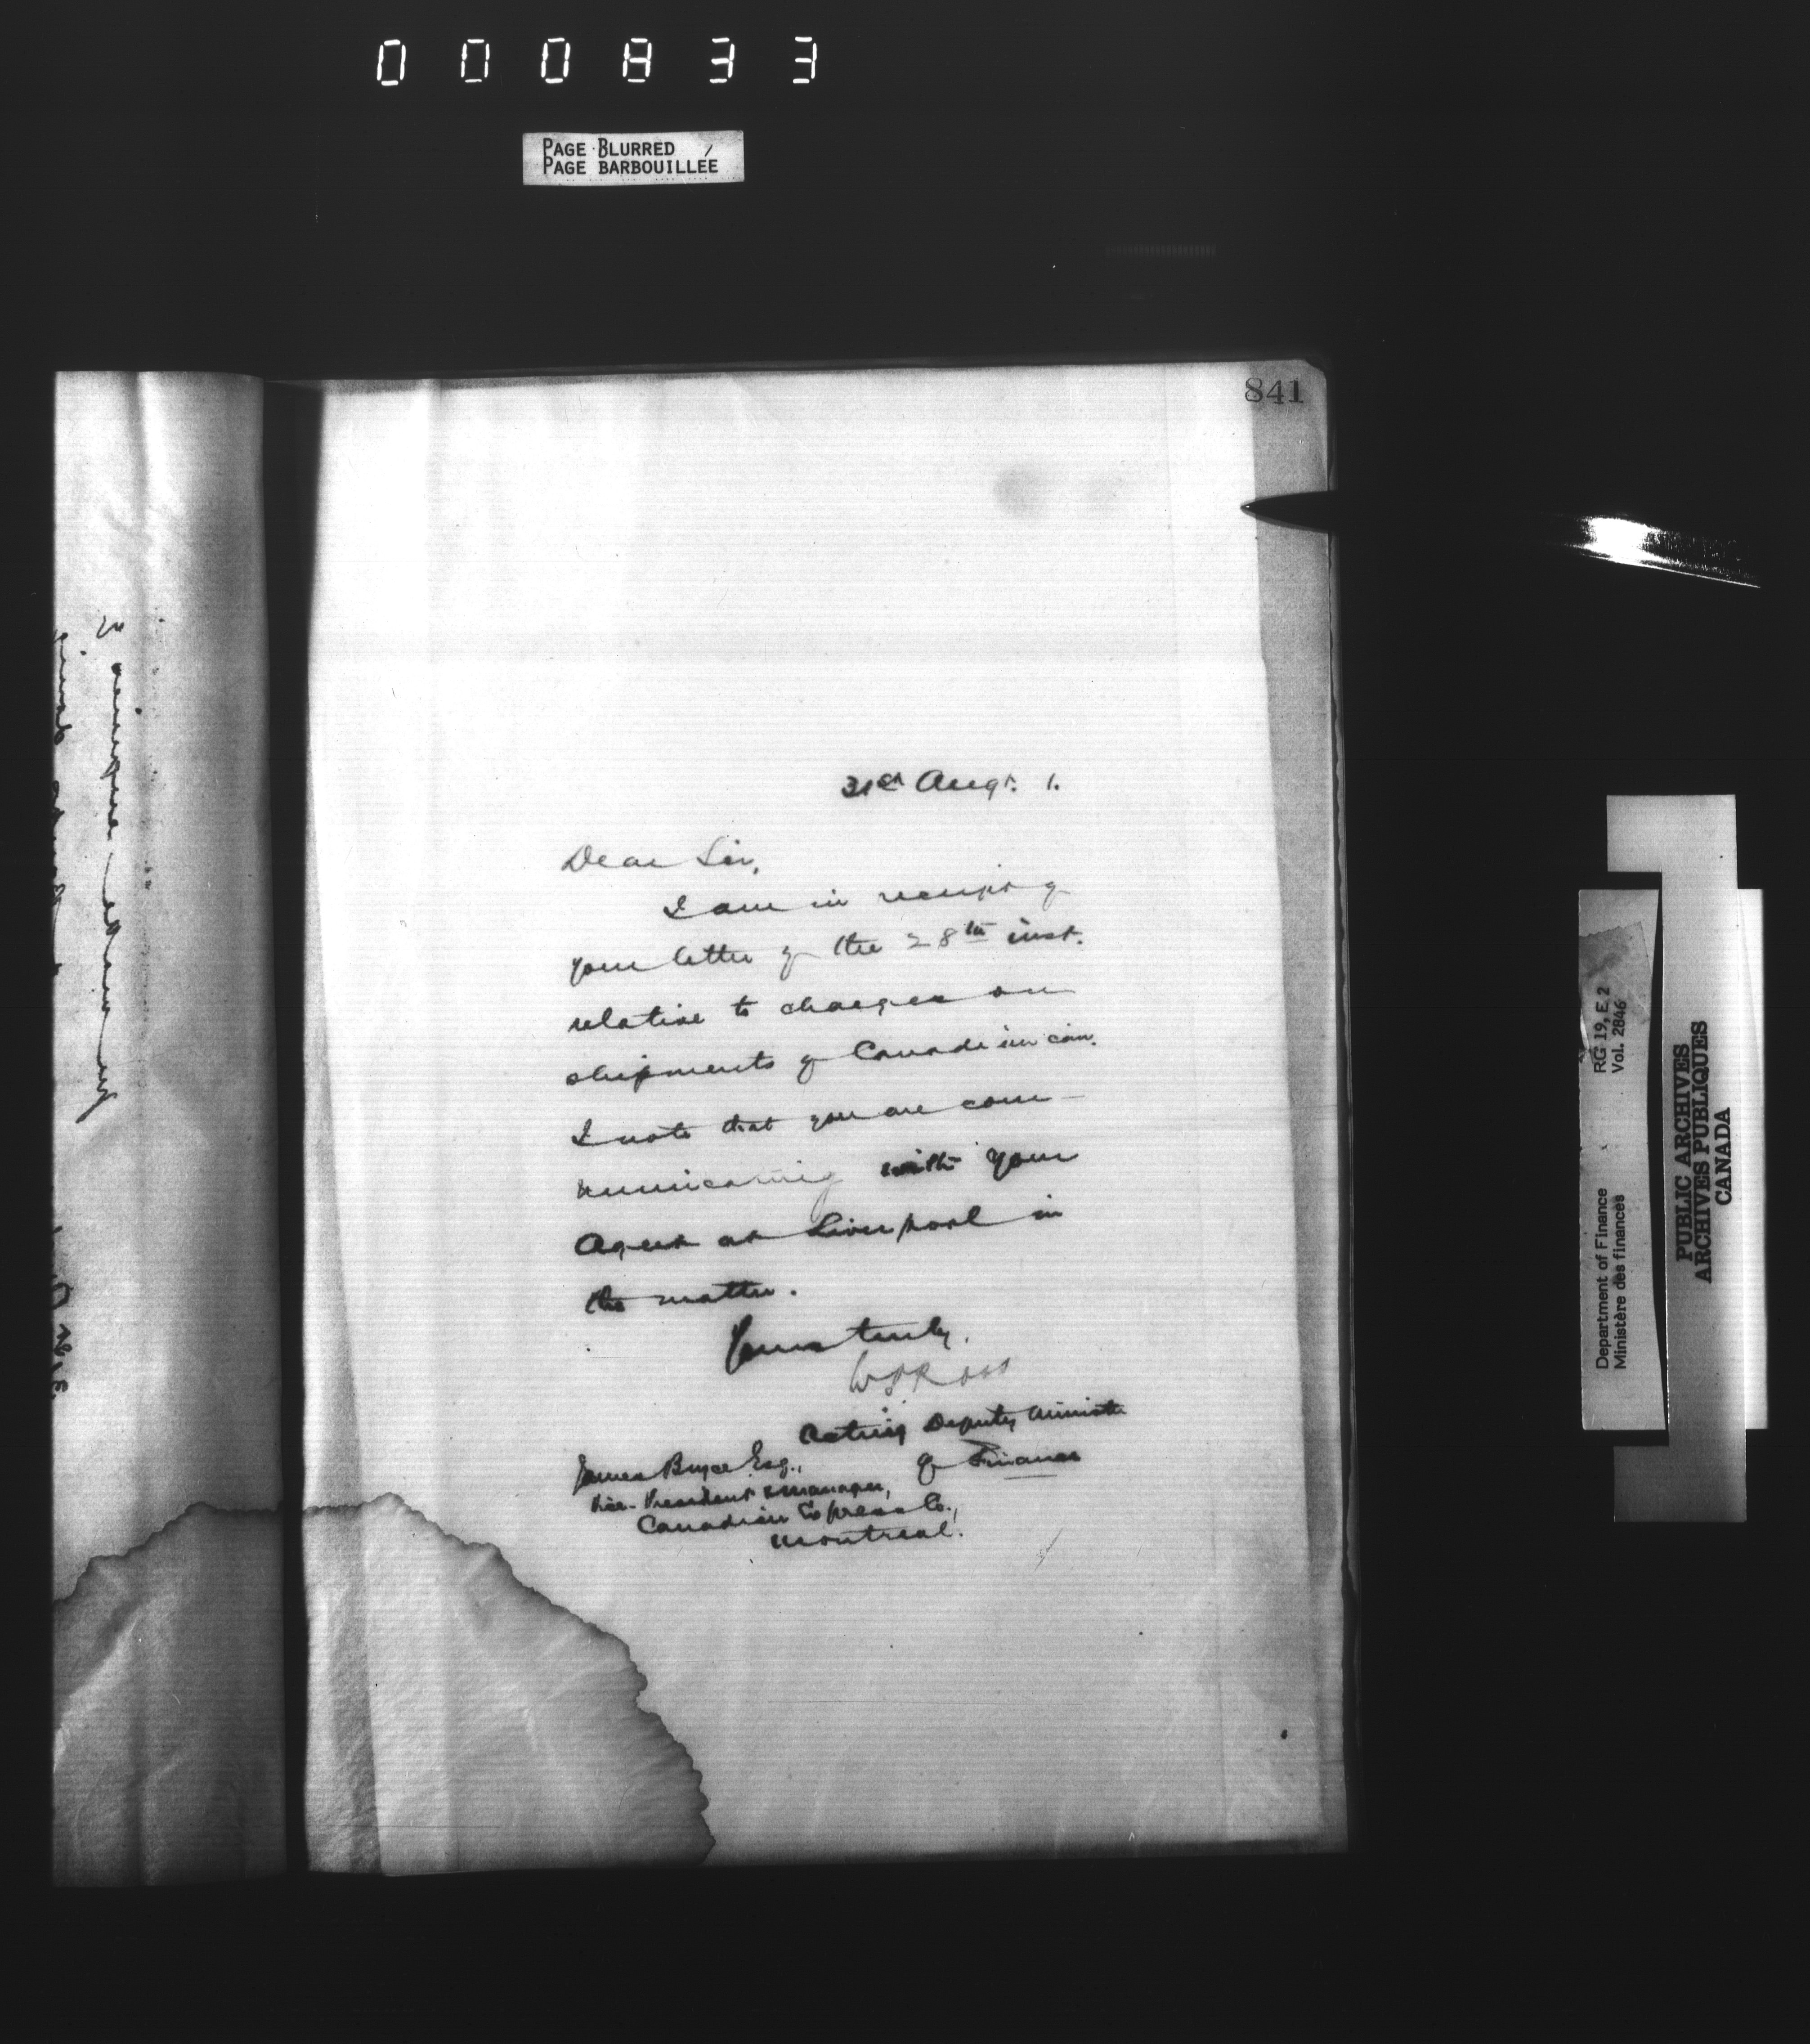 000833
PAGE BLURRED
PAGE BARBOUILLÉE
841
31st Augt. 1.
Dear Sir,
I am in receipt of
your letter of the 28th inst.
relative to charges on
shipments of Canadian coin.
I note that you are com-
municating with your
Agent at Liverpool in
the matter.
Yours truly,
W S Ross
Acting Deputy Minister
of Finance
James Bryce Esq.,
Vice-President & Manager,
Canadian Express Co.,
Montreal.
RG 19, E 2
Vol. 2846
Department of Finance
Ministère des finances
PUBLIC ARCHIVES
ARCHIVES PUBLIQUES
CANADA